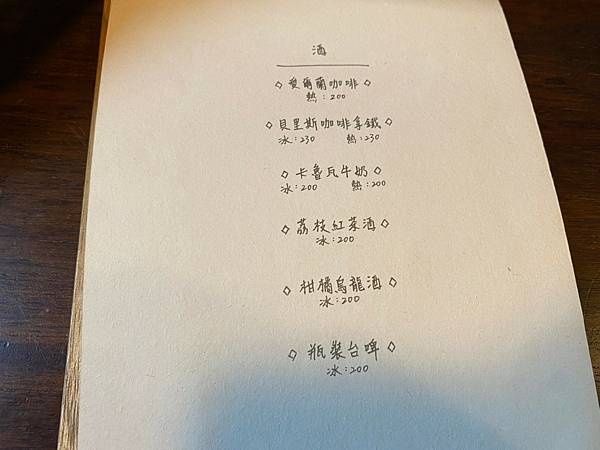 酒
◇ 愛爾蘭咖啡 ◇
熱：200
◇ 貝里斯咖啡拿鐵 ◇
冰：230 熱：230
◇ 卡魯瓦牛奶 ◇
冰：200 熱：200
◇ 荔枝紅茶酒 ◇
冰：200
◇ 柑橘烏龍酒 ◇
冰：200
◇ 瓶裝台啤 ◇
冰：200